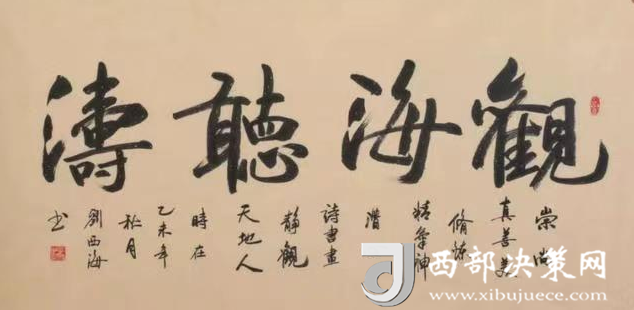 觀海聽濤
崇尚
真善美
脩煉
精氣神
潛
詩書畫
靜觀
天地人
時在
乙未年
秋月
劉西海
书
西部决策网
www.xibujuece.com